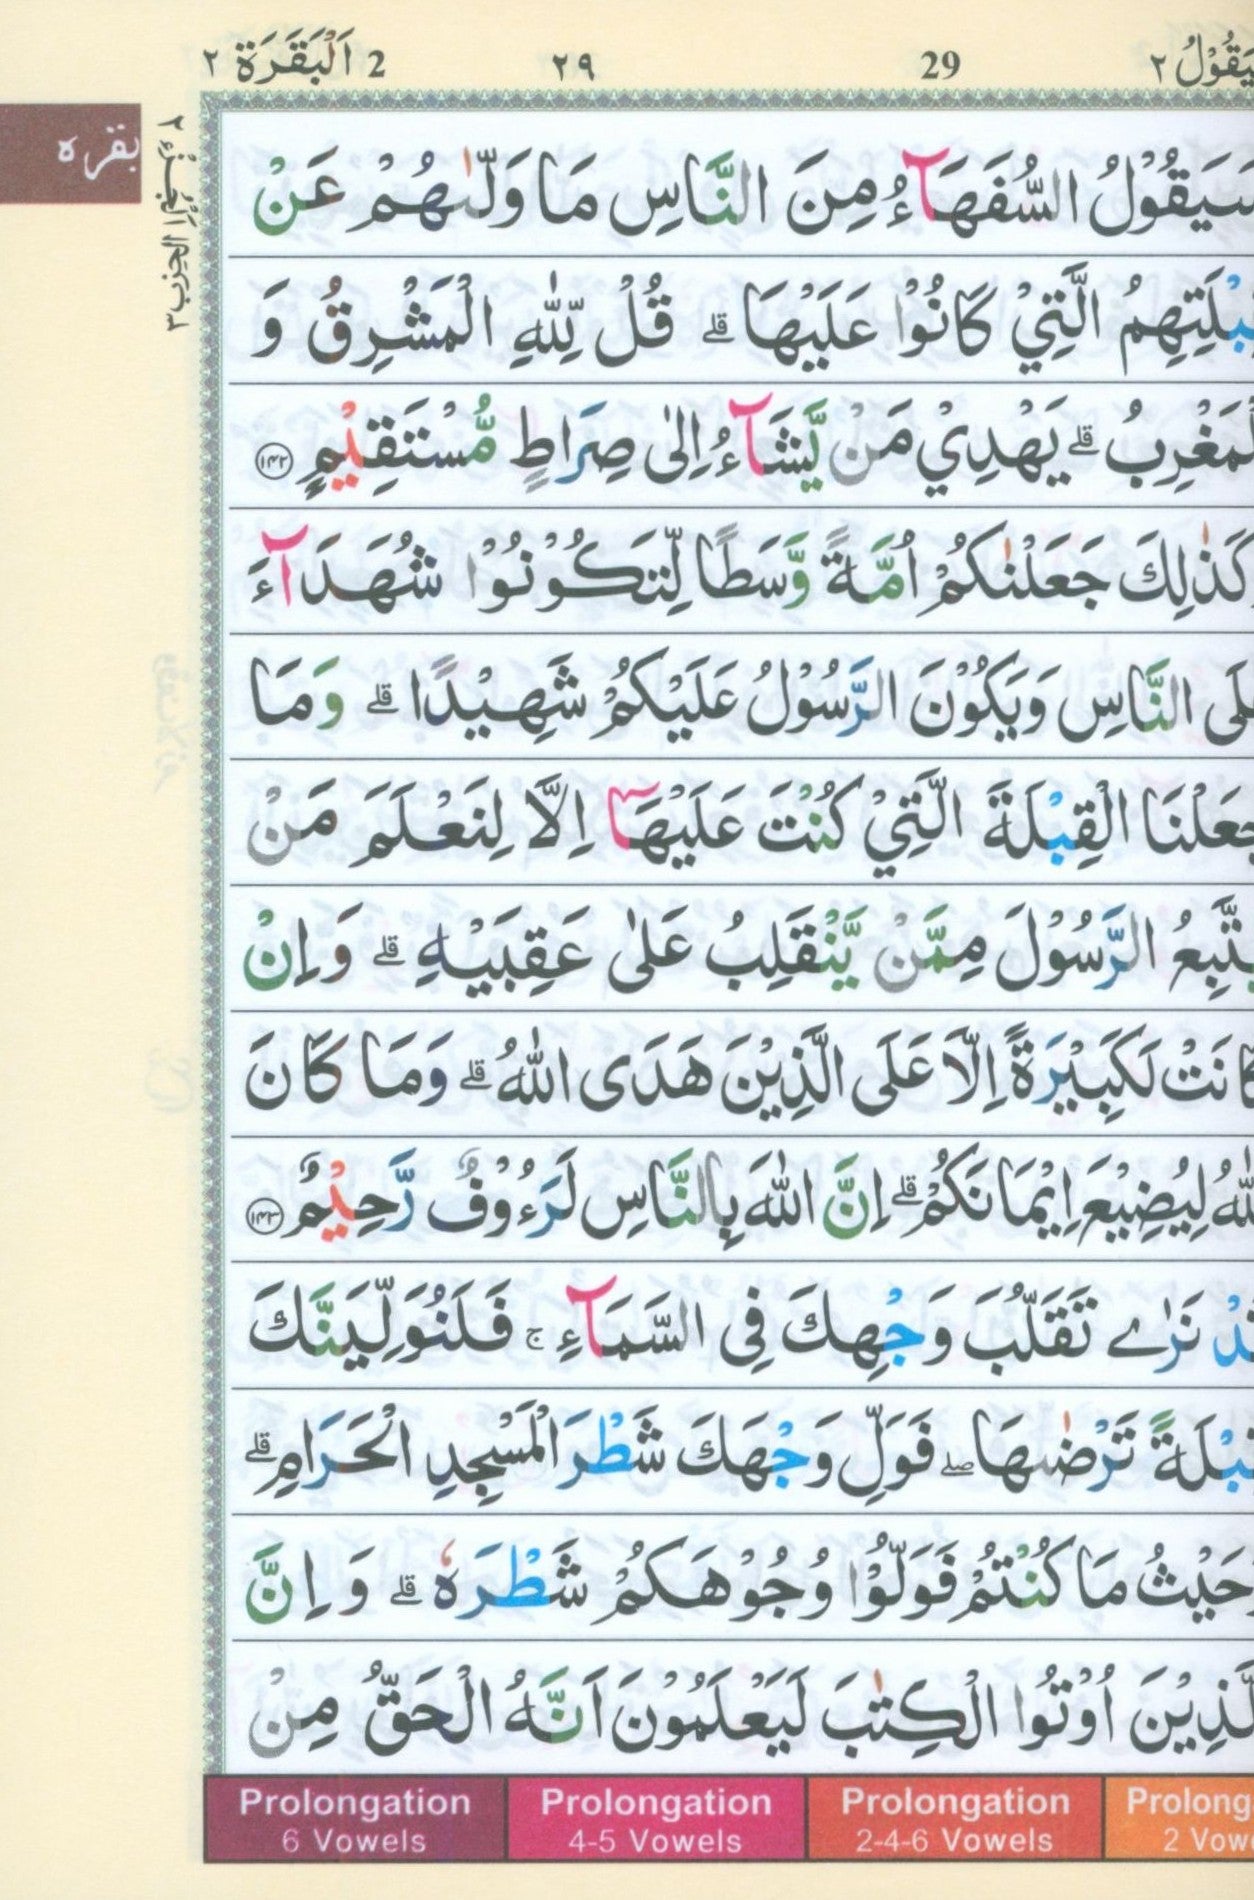 يَقُوْلُ ٢ 29 ٢٩ 2 اَلْبَقَرَة ٢
بقره
اَلْجُزْءُ ٢ اَلْحِزب ٣
سَيَقُوْلُ السُّفَهَآءُ مِنَ النَّاسِ مَا وَلّٰىهُمْ عَنْ
قِبْلَتِهِمُ الَّتِيْ كَانُوْا عَلَيْهَا ۗ قُلْ لِّلّٰهِ الْمَشْرِقُ وَ
الْمَغْرِبُ ۗ يَهْدِيْ مَنْ يَّشَآءُ اِلٰى صِرَاطٍ مُّسْتَقِيْمٍ ١٤٢
وَكَذٰلِكَ جَعَلْنٰكُمْ اُمَّةً وَّسَطًا لِّتَكُوْنُوْا شُهَدَآءَ
عَلَى النَّاسِ وَيَكُوْنَ الرَّسُوْلُ عَلَيْكُمْ شَهِيْدًا ۗ وَمَا
جَعَلْنَا الْقِبْلَةَ الَّتِيْ كُنْتَ عَلَيْهَآ اِلَّا لِنَعْلَمَ مَنْ
يَّتَّبِعُ الرَّسُوْلَ مِمَّنْ يَّنْقَلِبُ عَلٰى عَقِبَيْهِ ۗ وَاِنْ
كَانَتْ لَكَبِيْرَةً اِلَّا عَلَى الَّذِيْنَ هَدَى اللّٰهُ ۗ وَمَا كَانَ
اللّٰهُ لِيُضِيْعَ اِيْمَانَكُمْ ۗ اِنَّ اللّٰهَ بِالنَّاسِ لَرَءُوْفٌ رَّحِيْمٌ ١٤٣
قَدْ نَرٰى تَقَلُّبَ وَجْهِكَ فِى السَّمَآءِ ۚ فَلَنُوَلِّيَنَّكَ
قِبْلَةً تَرْضٰىهَا ۖ فَوَلِّ وَجْهَكَ شَطْرَ الْمَسْجِدِ الْحَرَامِ ۗ
وَحَيْثُ مَا كُنْتُمْ فَوَلُّوْا وُجُوْهَكُمْ شَطْرَهٗ ۗ وَ اِنَّ
الَّذِيْنَ اُوْتُوا الْكِتٰبَ لَيَعْلَمُوْنَ اَنَّهُ الْحَقُّ مِنْ
Prolongation Prolongation Prolongation Prolong
6 Vowels 4-5 Vowels 2-4-6 Vowels 2 Vow